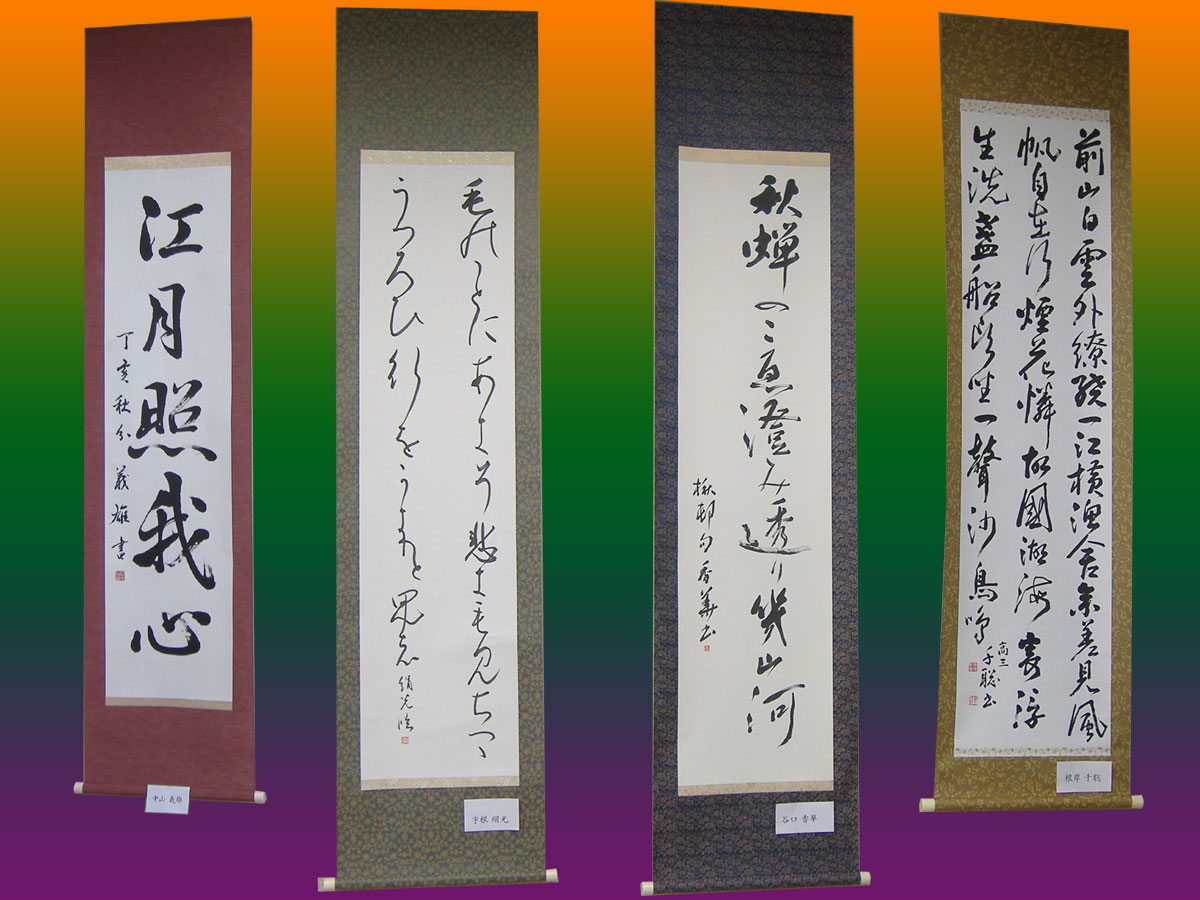 江月照我心
丁亥秋分 義雄書
中山 義雄
毛のことにあきそ悲きもみちつつ
うつろひ行をかきりと思
宇根 絹光
秋蝉のこ恵澄み透り幾山河
楸邨句 香華書
谷口 香華
前山白雲外繚繞一江横漁舎参差見風
帆自在行煙花憐故國湖海寄浮
生洗盞船頭坐一聲沙鳥鳴
高三
千聡書
根岸 千聡